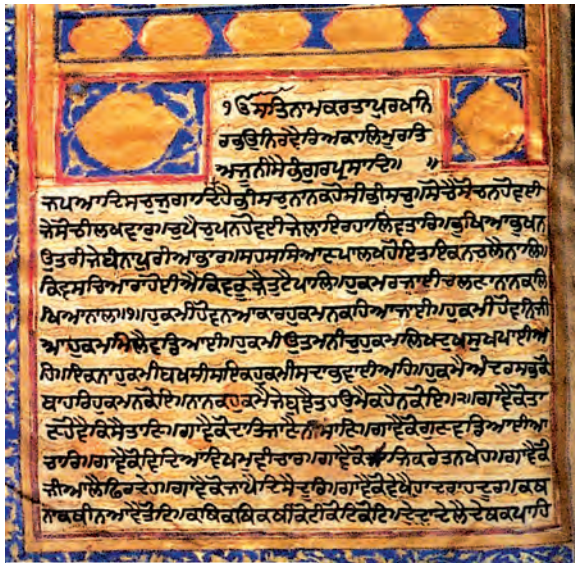 ੴਸਤਿਨਾਮਕਰਤਾਪੁਰਖਨਿ
ਰਭਉਨਿਰਵੈਰਿਅਕਾਲਿਮੂਰਤਿ
ਅਜੂਨੀਸੈਭੰਗੁਰਪ੍ਰਸਾਦਿ॥ ॥
ਜਪਆਦਿਸਚੁਜੁਗਾਦਿਹੈਭੀਸਚੁਨਾਨਕਹੋਸੀਭੀਸਚੁ॥ਸੋਚੈਸੋਚਨਹੋਵਈ
ਜੇਸੋਚੀਲਖਵਾਰ॥ਚੁਪੈਚੁਪਨਹੋਵਈਜੇਲਾਇਰਹਾਲਿਵਤਾਰਿ॥ਭੁਖਿਆਭੁਖਨ
ਉਤਰੀਜੇਬੰਨਾਪੁਰੀਆਭਾਰ॥ਸਹਸਸਿਆਣਪਾਲਖਹੋਇਤਇਕਨਚਲੈਨਾਲਿ॥
ਕਿਵਸਚਿਆਰਾਹੋਈਐਕਿਵਕੂੜੈਤੁਟੈਪਾਲਿ॥ਹੁਕਮਰਜਾਈਚਲਣਾਨਾਨਕਲਿ
ਖਿਆਨਾਲ॥੧॥ਹੁਕਮੀਹੋਵਨਆਕਾਰਹੁਕਮਨਕਹਿਆਜਾਈ॥ਹੁਕਮੀਹੋਵਨਿਜੀ
ਆਹੁਕਮਮਿਲੈਵਡਿਆਈ॥ਹੁਕਮੀਉਤਮਨੀਚੁਹੁਕਮਲਿਖਦੁਖਸੁਖਪਾਈਅ
ਹਿ॥ਇਕਨਾਹੁਕਮੀਬਖਸੀਸਇਕਹੁਕਮੀਸਦਾਭਵਾਈਅਹਿ॥ਹੁਕਮੈਅੰਦਰਸਭਕੋ
ਬਾਹਰਿਹੁਕਮਨਕੋਇ॥ਨਾਨਕਹੁਕਮੈਜੇਬੁਝੈਤਹਉਮੈਕਹੈਨਕੋਇ॥੨॥ਗਾਵੈਕੋਤਾ
ਣਹੋਵੈਕਿਸੈਤਾਣਿ॥ਗਾਵੈਕੋਦਾਤਿਜਾਣੈਨੀਸਾਣਿ॥ਗਾਵੈਕੋਗੁਣਵਡਿਆਈਆ
ਚਾਰਿ॥ਗਾਵੈਕੋਵਿਦਿਆਵਿਖਮੁਵੀਚਾਰ॥ਗਾਵੈਕੋਸਾਜਿਕਰੇਤਨਖੇਹ॥ਗਾਵੈਕੋ
ਜੀਅਲੈਫਿਰਿਦੇਹ॥ਗਾਵੈਕੋਜਾਪੈਦਿਸੈਦੂਰਿ॥ਗਾਵੈਕੋਵੇਖੈਹਾਦਰਾਹਦੂਰ॥ਕਥ
ਨਾਕਥੀਨਆਵੈਤੋਟਿ॥ਕਥਿਕਥਿਕਥੀਕੋਟੀਕੋਟਿਕੋਟਿ॥ਦੇਦਾਦੇਲੈਦੇਥਕਪਾਹਿ